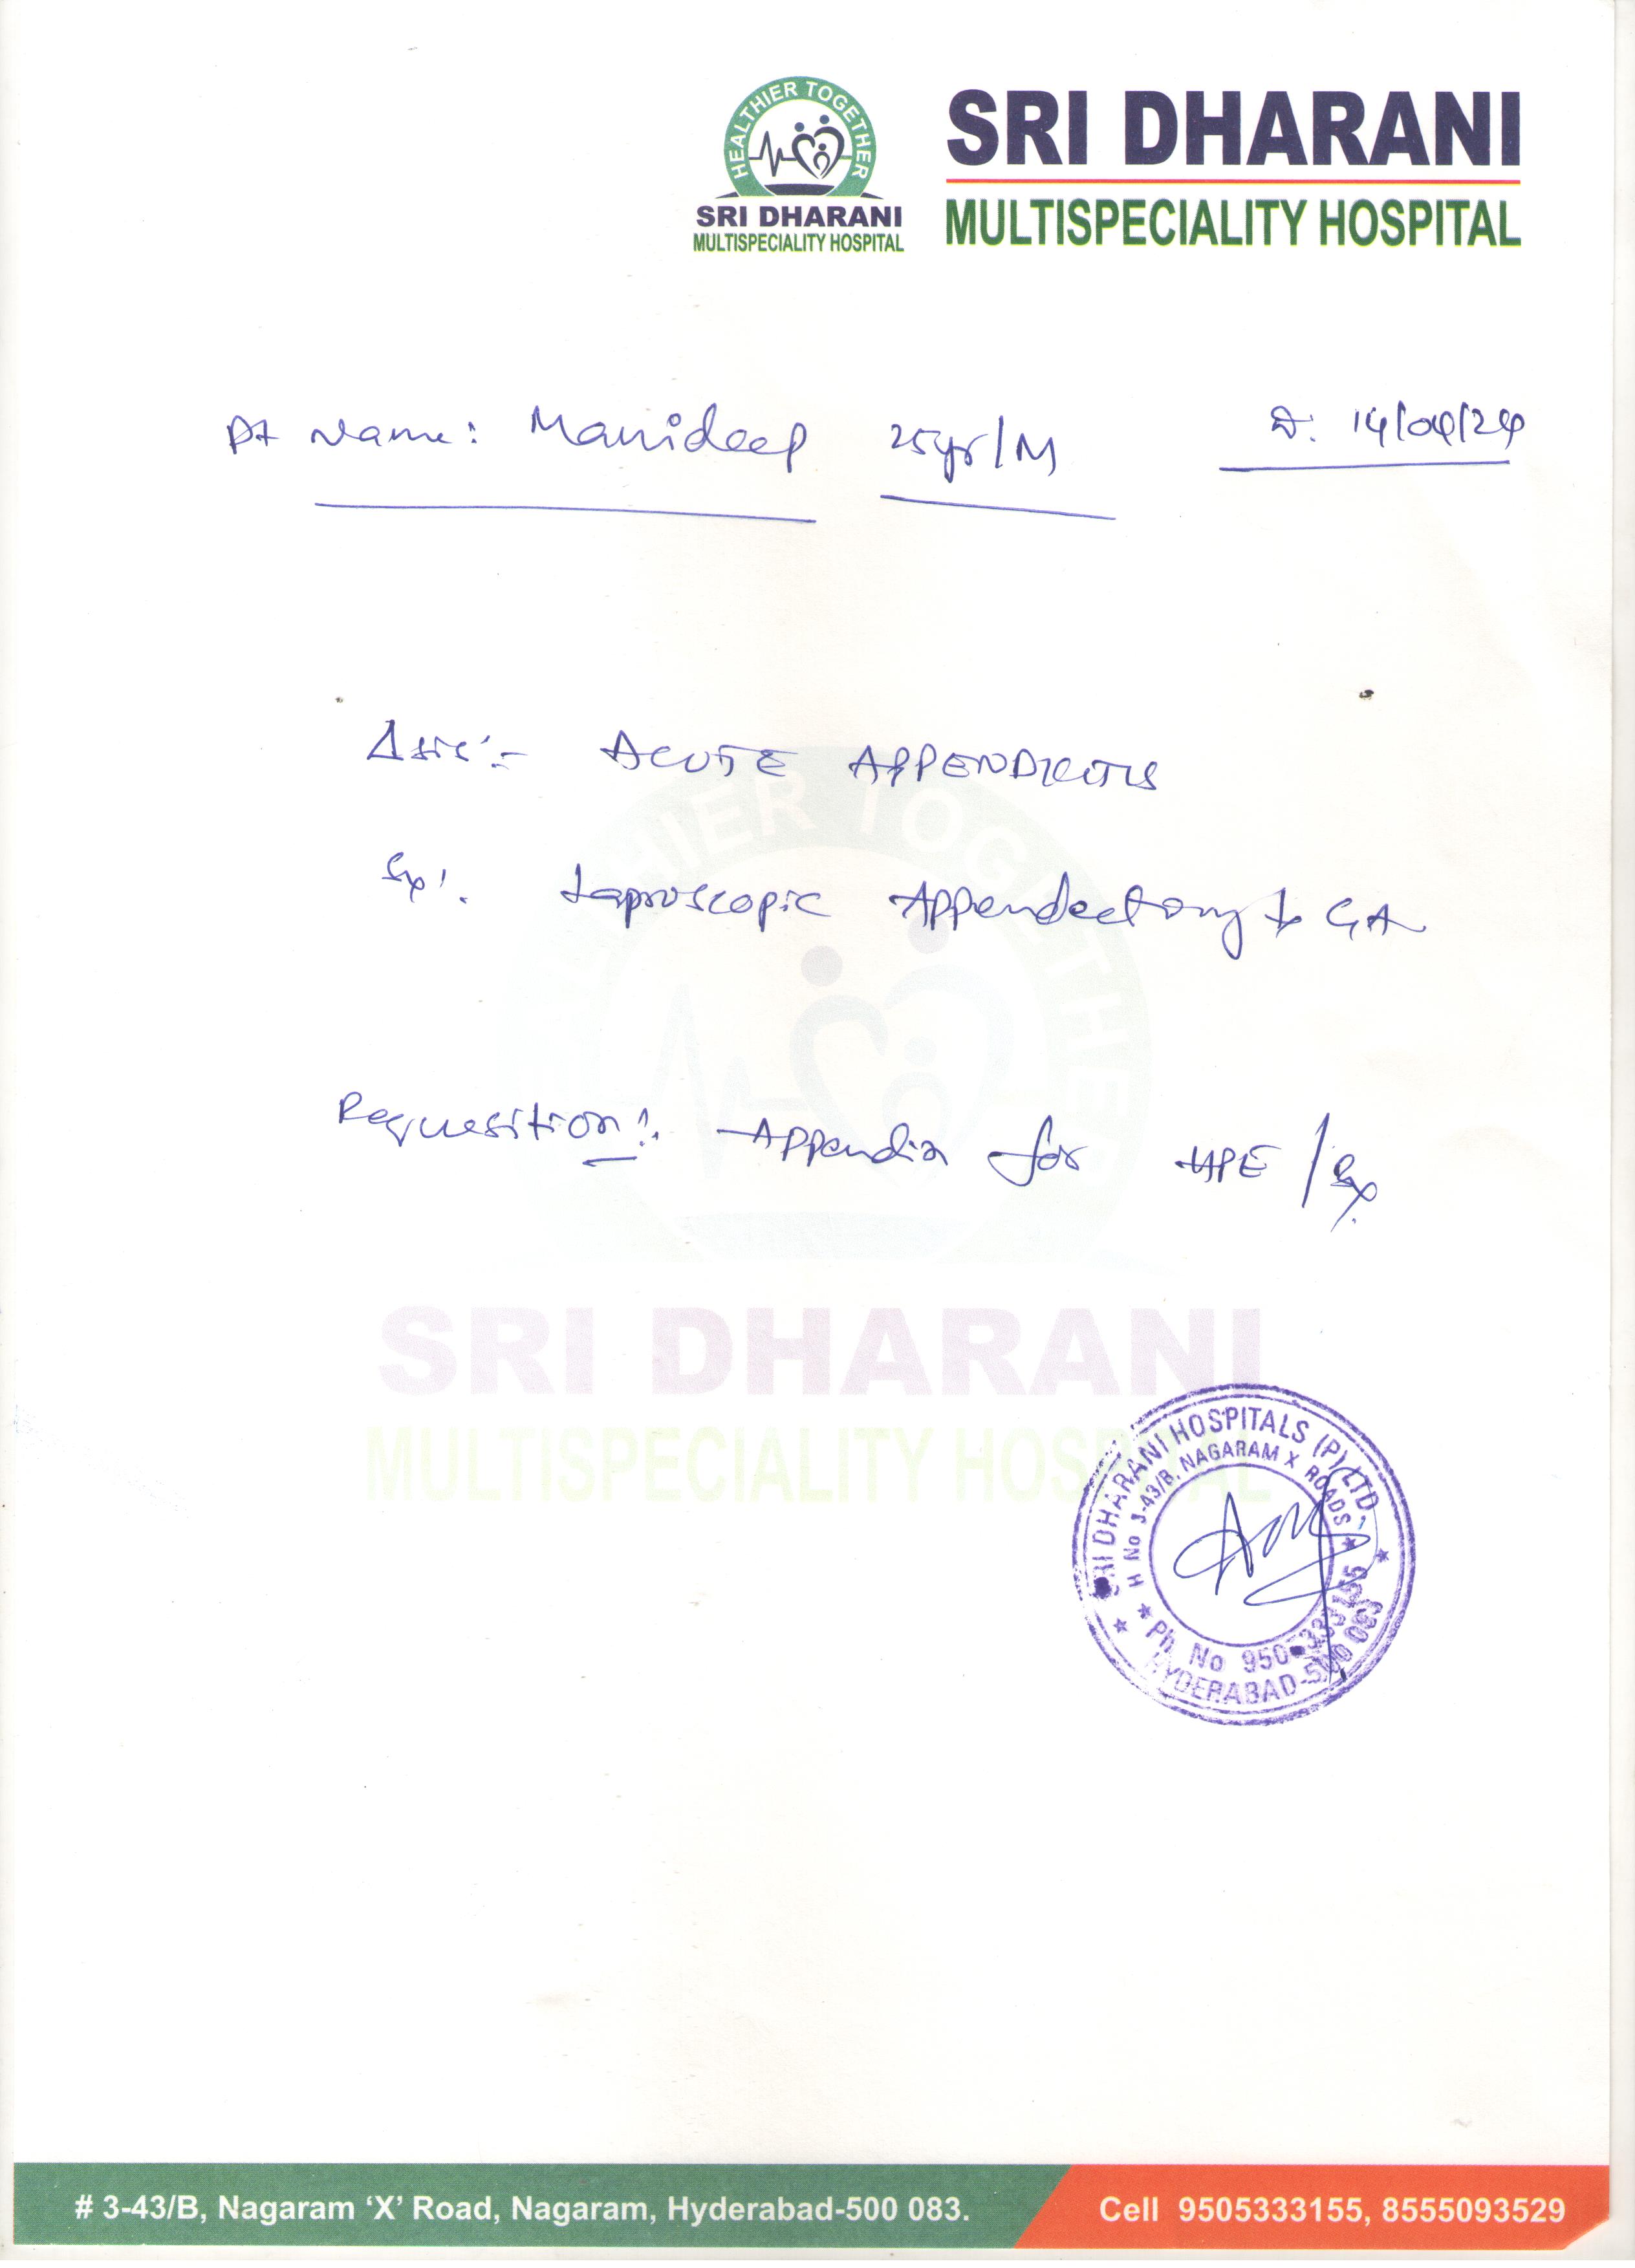 HEALTHIER TOGETHER
SRI DHARANI
MULTISPECIALITY HOSPITAL
SRI DHARANI
MULTISPECIALITY HOSPITAL
Pt Name: Manideep 25yr/M D: 14/04/24
ACUTE APPENDICITIS
Sx:. Laproscopic Appendectomy GA
Requesition:. Appendix for HPE /
HEALTHIER TOGETHER
SRI DHARANI
MULTISPECIALITY HOSPITAL
SRI DHARANI HOSPITALS (P) LTD.
H No 3-43/B, NAGARAM X ROADS
Ph. No
HYDERABAD-500 083
# 3-43/B, Nagaram ‘X’ Road, Nagaram, Hyderabad-500 083.
Cell 9505333155, 8555093529